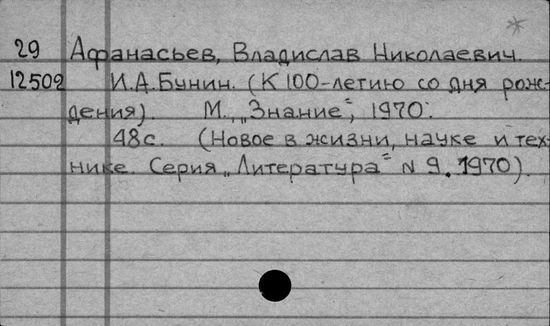 29 Афанасьев, Владислав Николаевич.
12502 И.А.Бунин. (К 100-летию со дня рож-
дения). М., „Знание“, 1970.
48с. (Новое в жизни, науке и тех-
нике. Серия „Литература“ N 9. 1970).